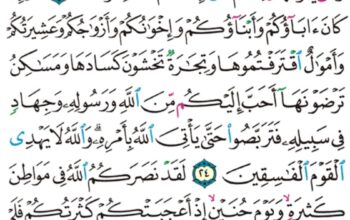 كَانَ ءَابَآؤُكُمْ وَأَبْنَآؤُكُمْ وَإِخْوَٰنُكُمْ وَأَزْوَٰجُكُمْ وَعَشِيرَتُكُمْ
وَأَمْوَٰلٌ ٱقْتَرَفْتُمُوهَا وَتِجَٰرَةٌ تَخْشَوْنَ كَسَادَهَا وَمَسَٰكِنُ
تَرْضَوْنَهَآ أَحَبَّ إِلَيْكُم مِّنَ ٱللَّهِ وَرَسُولِهِۦ وَجِهَادٍ
فِى سَبِيلِهِۦ فَتَرَبَّصُوا۟ حَتَّىٰ يَأْتِىَ ٱللَّهُ بِأَمْرِهِۦ ۗ وَٱللَّهُ لَا يَهْدِى
ٱلْقَوْمَ ٱلْفَٰسِقِينَ ٢٤ لَقَدْ نَصَرَكُمُ ٱللَّهُ فِى مَوَاطِنَ
كَثِيرَةٍ ۙ وَيَوْمَ حُنَيْنٍ ۙ إِذْ أَعْجَبَتْكُمْ كَثْرَتُكُمْ فَلَمْ